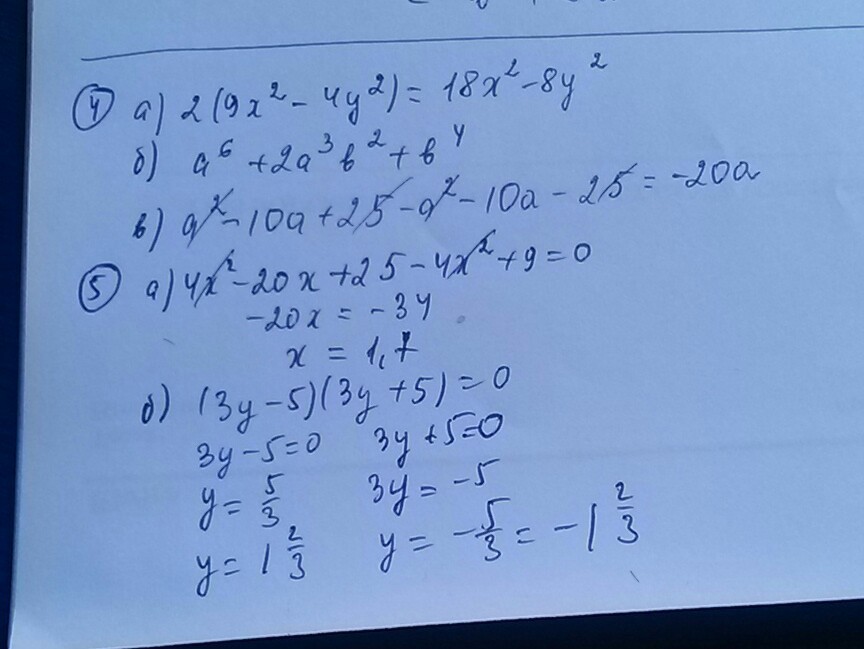 ④ а) 2(9x² - 4y²) = 18x² - 8y²
б) a⁶ + 2a³b² + b⁴
в) a² - 10a + 25 - a² - 10a - 25 = -20a
⑤ а) 4x² - 20x + 25 - 4x² + 9 = 0
-20x = -34
x = 1,7
б) (3y - 5)(3y + 5) = 0
3y - 5 = 0 3y + 5 = 0
y = 5/3 3y = -5
y = 1 2/3 y = -5/3 = -1 2/3